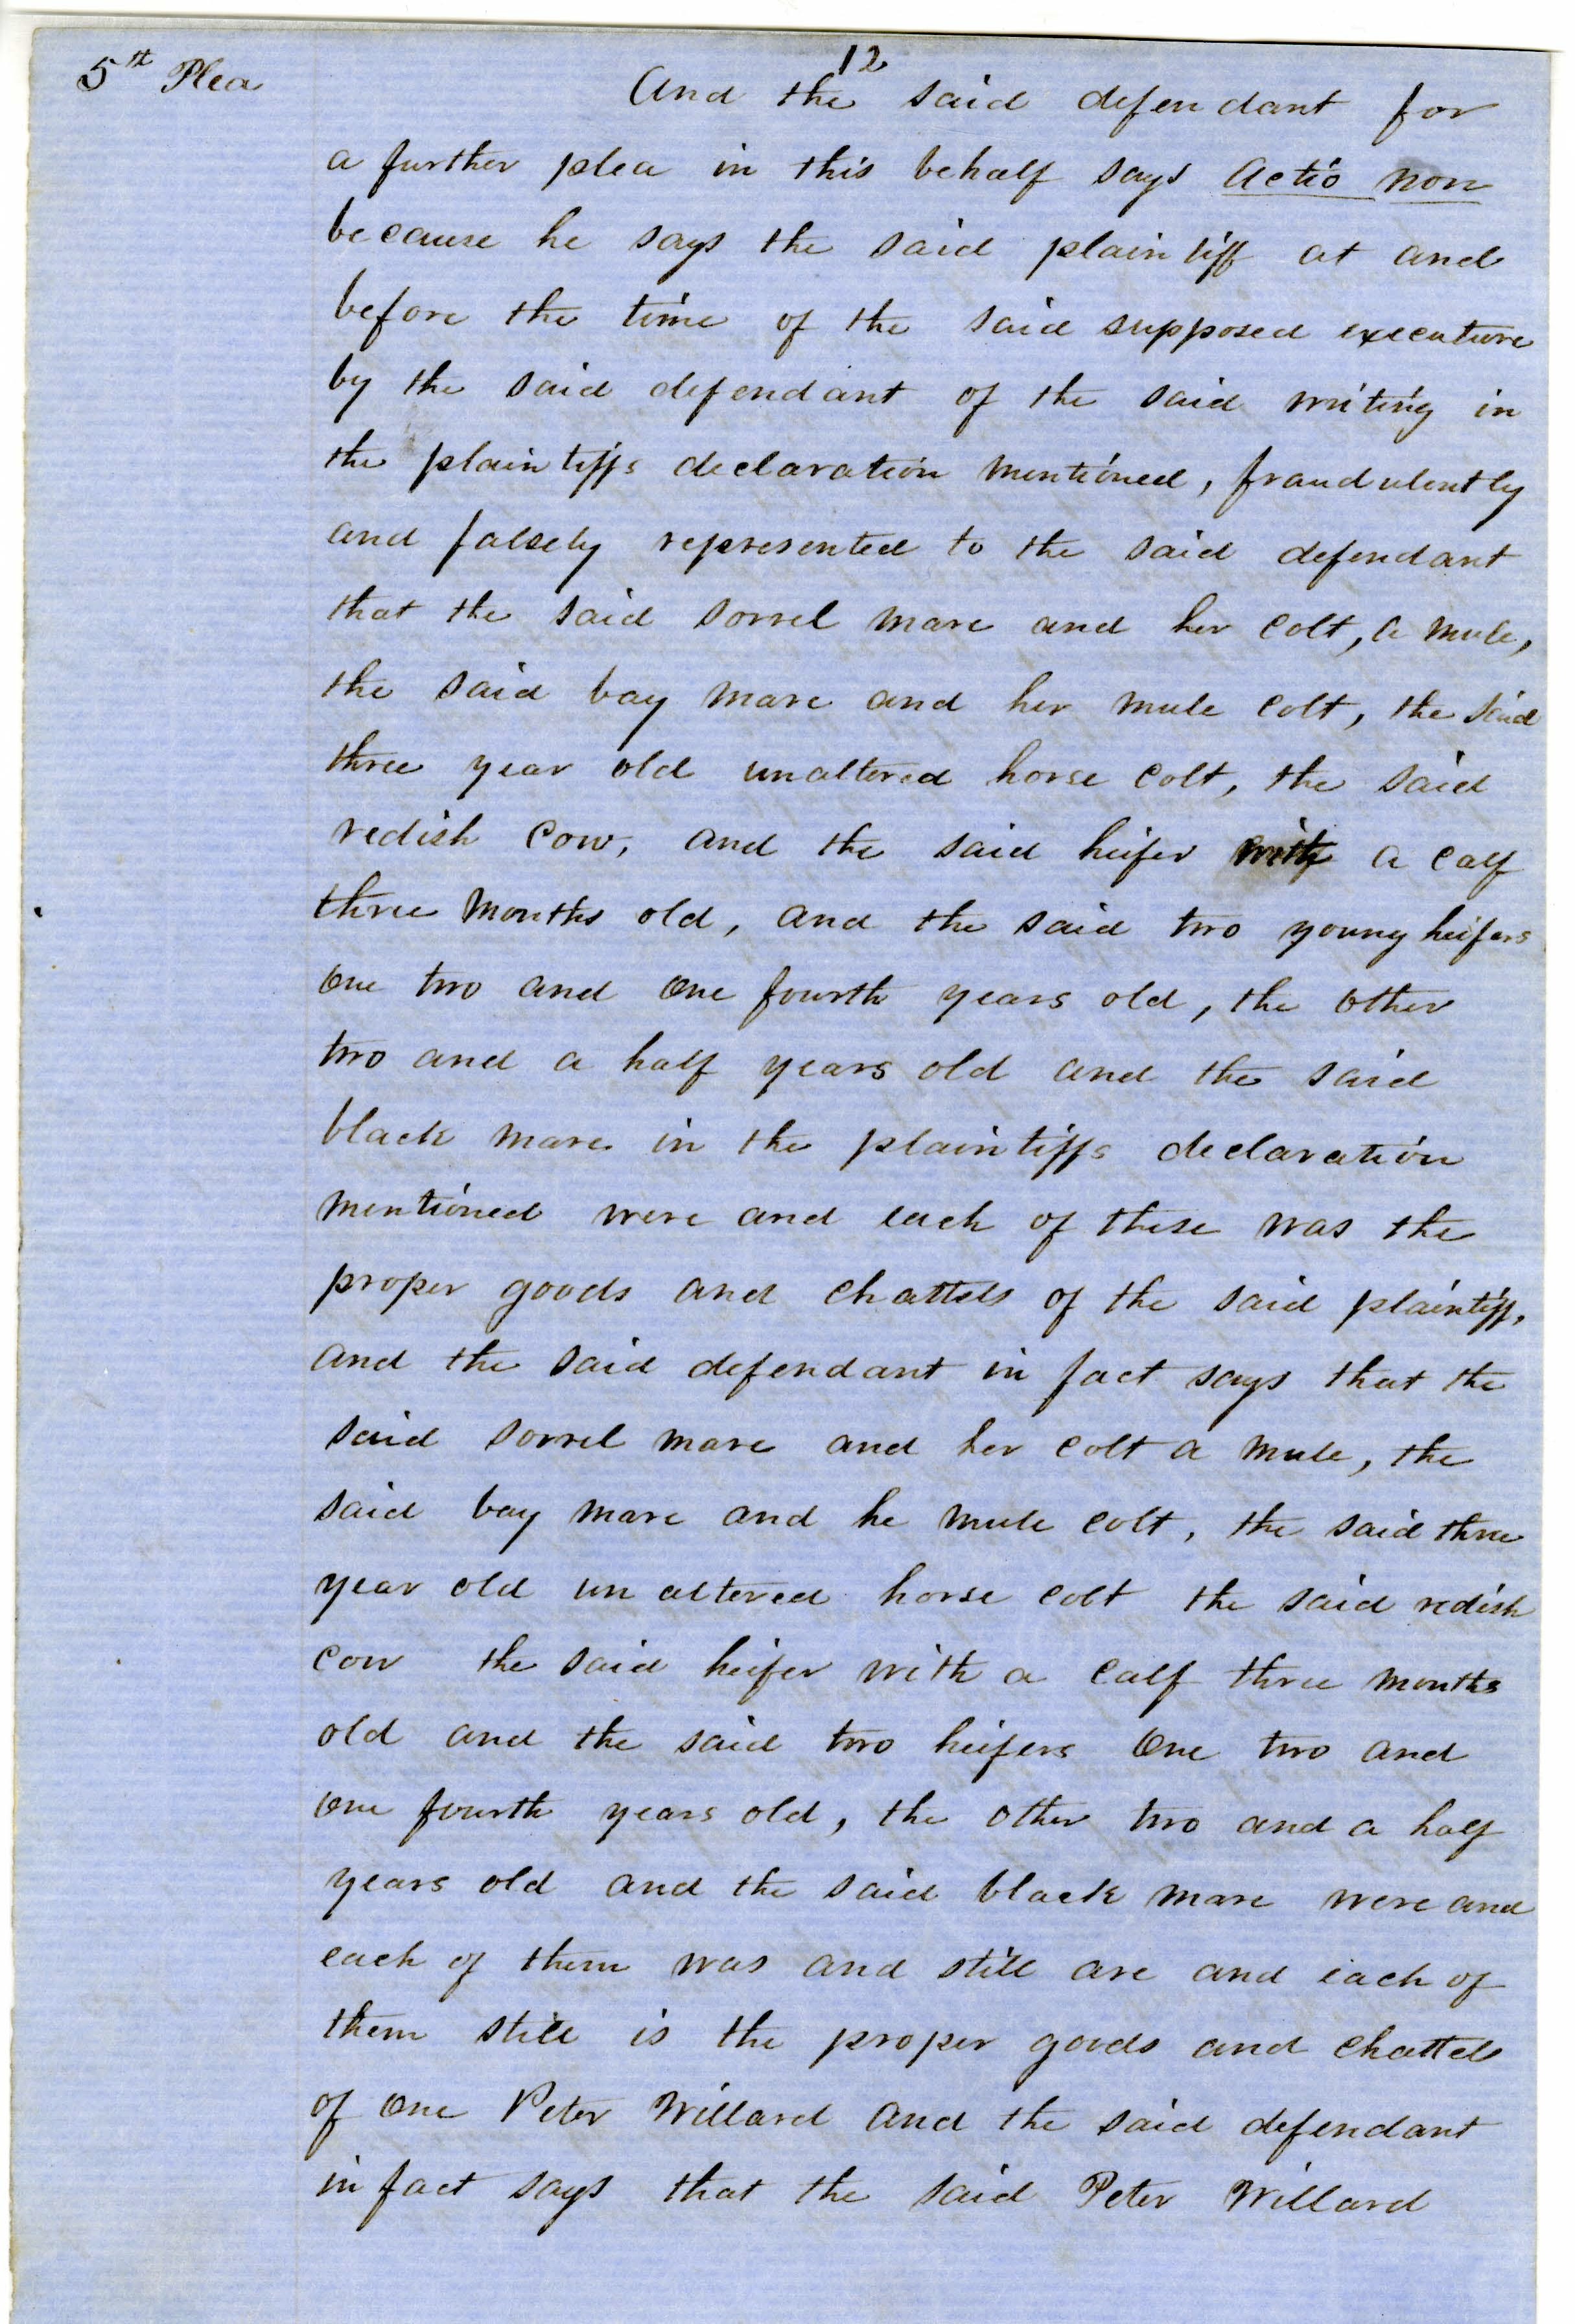 12
5th Plea
And the said defendant for
a further plea in this behalf says Actio non
because he says the said plaintiff at and
before the time of the said supposed executure
by the said defendant of the said writing in
the plaintiffs declaration mentioned, fraudulently
and falsely represented to the said defendant
that the said sorrel mare and her colt, a mule,
the said bay mare and her mule colt, the said
three year old unaltered horse colt, the said
redish cow, and the said heifer with a calf
three months old, and the said two young heifers
one two and one fourth years old, the other
two and a half years old and the said
black mare in the plaintiffs declaration
mentioned were and each of these was the
proper goods and chattels of the said plaintiff,
and the said defendant in fact says that the
said sorrel mare and her colt a mule, the
said bay mare and he mule colt, the said three
year old un altered horse colt the said redish
cow the said heifer with a calf three months
old and the said two heifers one two and
one fourth years old, the other two and a half
years old and the said black mare were and
each of them was and still are and each of
them still is the proper goods and chattels
of one Peter Willard and the said defendant
in fact says that the said Peter Willard